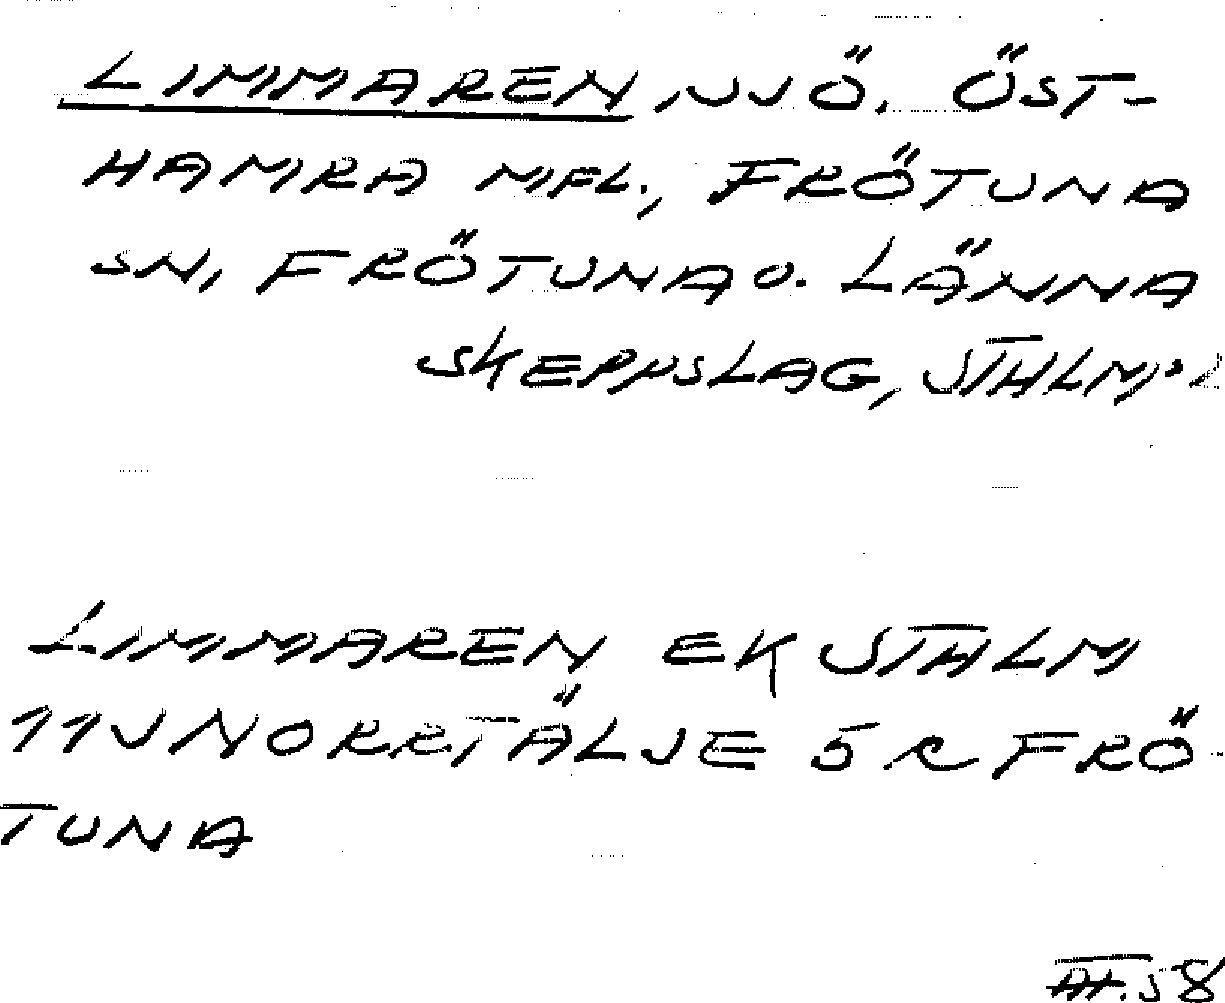 LIMMAREN, SJÖ. ÖST-
HAMRA MFL., FRÖTUNA
SN, FRÖTUNA O. LÄNNA
SKEPPSLAG, STHLM:S L
LIMMAREN EK STHLM
11J NORRTÄLJE 5 R FRÖ-
TUNA
58